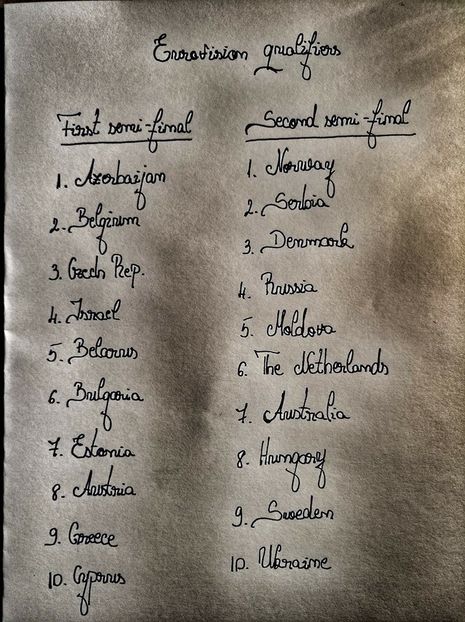 Eurovision qualifiers
First semi-final
1. Azerbaijan
2. Belgium
3. Czech Rep.
4. Israel
5. Belarus
6. Bulgaria
7. Estonia
8. Austria
9. Greece
10. Cyprus
Second semi-final
1. Norway
2. Serbia
3. Denmark
4. Russia
5. Moldova
6. The Netherlands
7. Australia
8. Hungary
9. Sweden
10. Ukraine